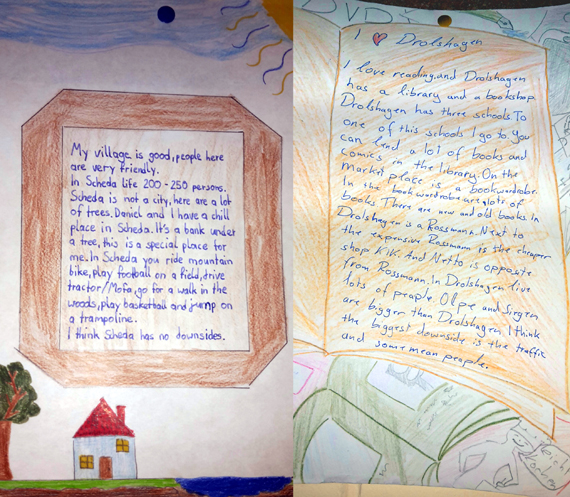 My village is good, people here
are very friendly.
In Scheda life 200 - 250 persons.
Scheda is not a city, here are a lot
of trees. Daniel and I have a chill
place in Scheda. It's a bank under
a tree, this is a special place for
me. In Scheda you ride mountain
bike, play football on a field, drive
tractor/Mofa, go for a walk in the
woods, play basketball and jump on
a trampoline.
I think Scheda has no downsides.
DVD
I ❤ Drolshagen
I love reading, and Drolshagen
has a library and a bookshop.
Drolshagen has three schools. To
one of this schools I go to. You
can lend a lot of books and
comics in the library. On the
market place is a bookwardrobe.
In the bookwardrobe are lots of
books. There are new and old books. In
Drolshagen is a Rossmann. Next to
the expensive Rossmann is the cheaper
shop KiK. And Netto is opposite
from Rossmann. In Drolshagen live
lots of people. Olpe and Siegen
are bigger than Drolshagen. I think
the biggest downside is the traffic
and some mean people.